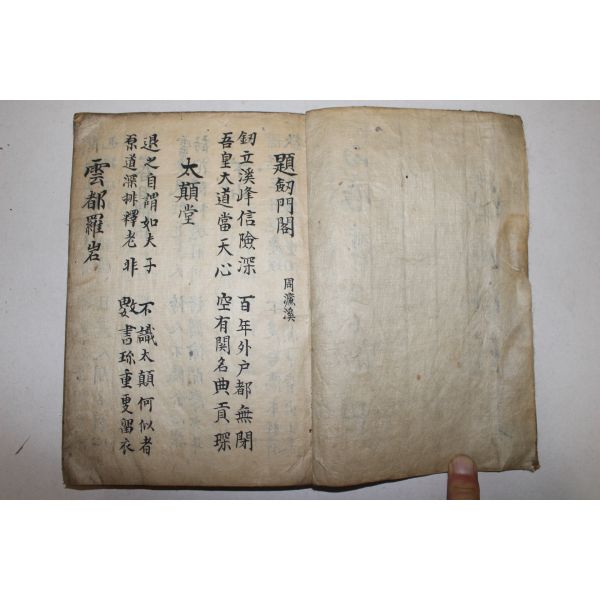 題劒門閣
周濂溪
釰立溪峰信險深 百年外戶都無閉
吾皇大道當天心 空有関名典貢琛
太顛堂
退之自謂如夫子 不識太顛何似者
原道深排釋老非 數書珎重更留衣
雲都羅岩